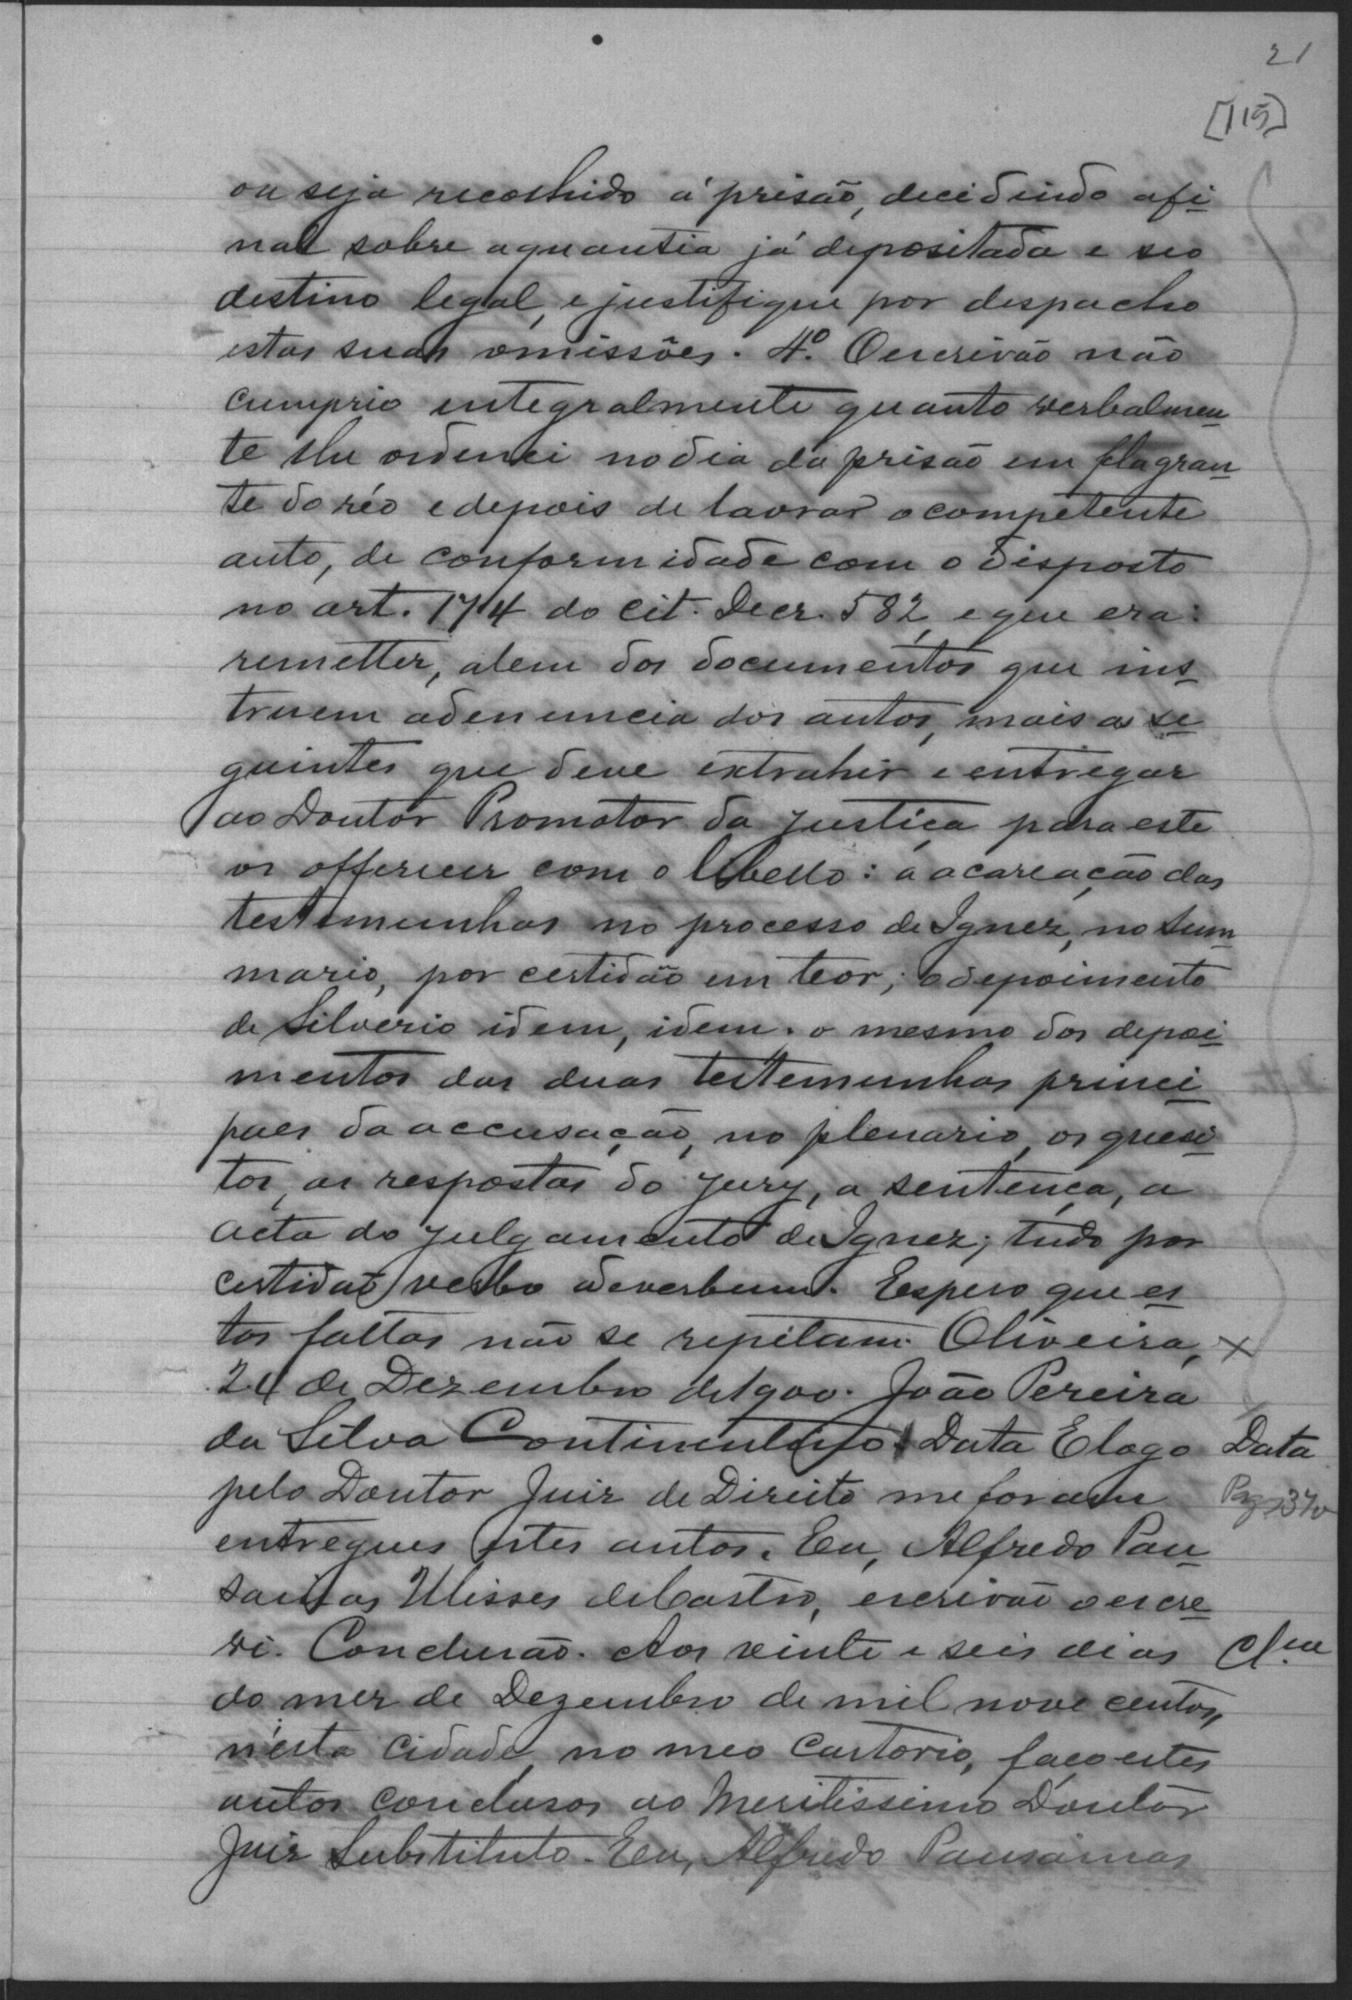 21
[115]
ou seja recolhido á prisão, decidindo afi-
nal sobre aquantia já depositada e seo
destino legal, e justifique por despacho
estas suas omissões. 4º. Oescrivão não
cumprio integralmente quanto verbalmen-
te lhe ordenei nodia da prisão em flagran-
te do réo e depois de lavrar o competente
auto, de conformidade com o disposto
no art. 174 do cit. Decr. 582, e que era:
remetter, alem dos documentos que ins-
truem adenuncia dos autos, mais os se-
guintes que deve extrahir e entregar
ao Doutor Promotor da Justiça para este
os offerecer com o libello: a acareação das
testemunhas no processo de Ignez, no sum-
mario, por certidão em teor; o depoimento
de Silverio idem, idem. o mesmo dos depoi-
mentos das duas testemunhas princi-
paes da accusação, no plenario, os quesi-
tos, as respostas do jury, a sentença, a
acta do julgamento de Ignez; tudo por
certidão verbo adverbum. Espero que es-
tas faltas não se repitam. Oliveira, X
24 de Dezembro de 1900. João Pereira
da Silva Continentino. Data E logo Data
pelo Doutor Juiz de Direito me foram Pag 37v
entregues estes autos. Eu, Alfredo Pau-
sanias Ulisses de Castro, escrivão o escre-
vi. Conclusão. Aos vinte e seis dias Cl.am
do mez de Dezembro de mil nove centos,
nésta Cidade, no meo Cartorio, faço estes
autos conclusos ao Meritissimo Doutor
Juiz Substituto. Eu, Alfredo Pausanias